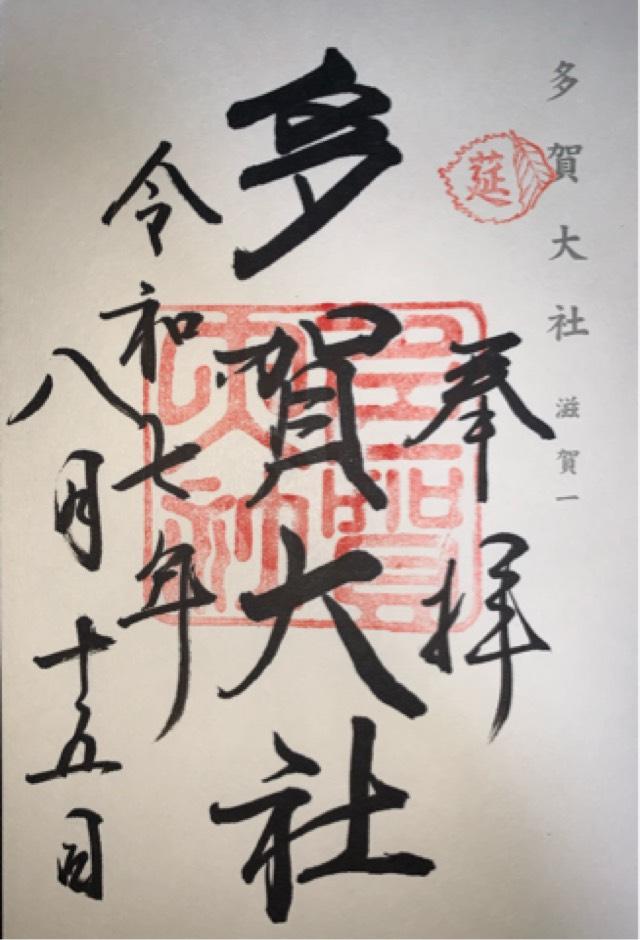 多賀大社 滋賀一
莚
奉拝
多賀大社
多賀大社
令和七年
八月十五日